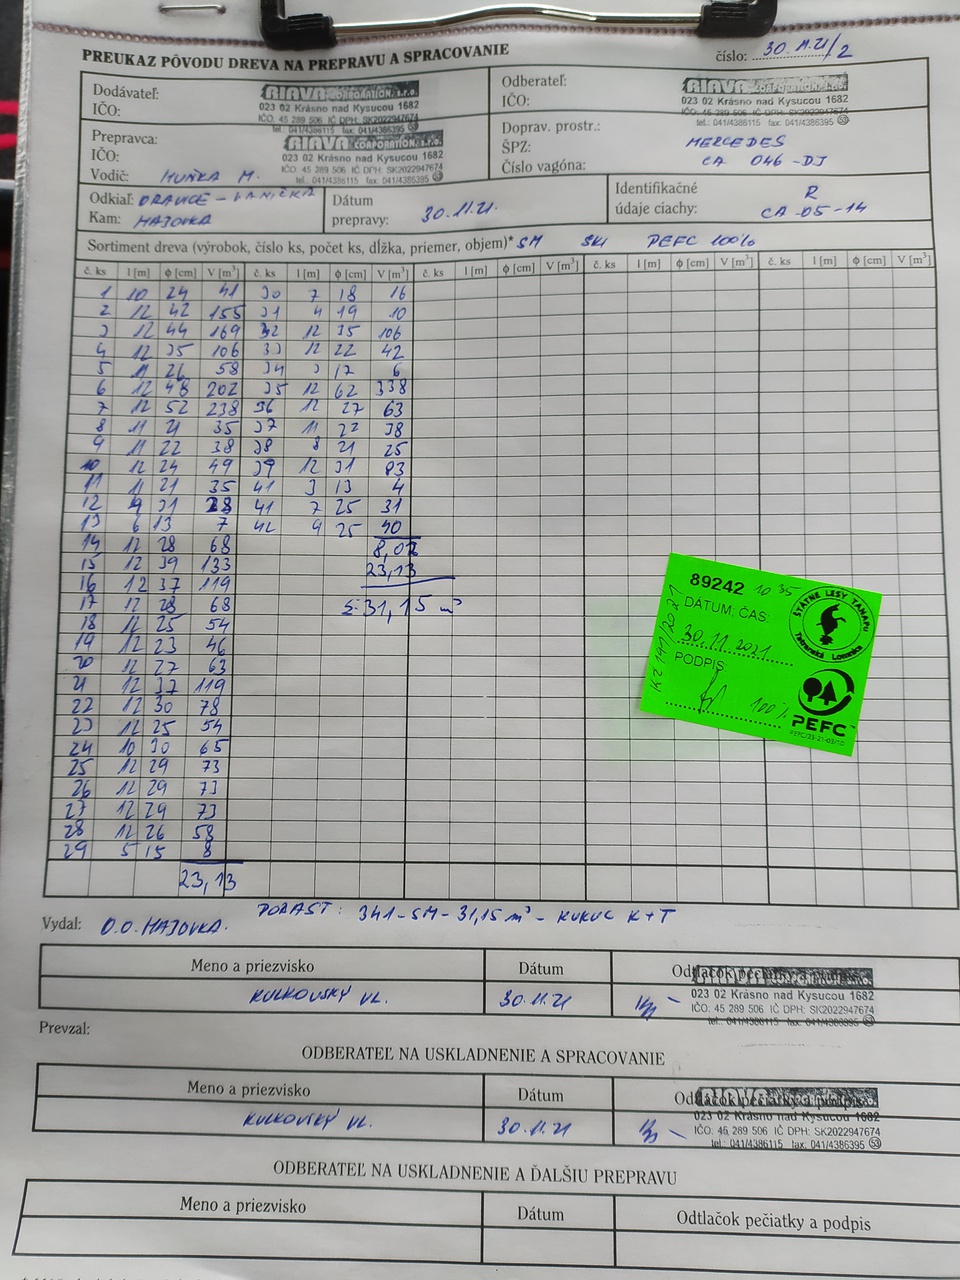 PREUKAZ PÔVODU DREVA NA PREPRAVU A SPRACOVANIE
číslo: 30.11.21/2
Dodávateľ:
IČO:
RIAVA CORPORATION, s.r.o.
023 02 Krásno nad Kysucou 1682
IČO: 45 289 506 IČ DPH: SK2022947674
tel.: 041/4386115 fax: 041/4386395 53
Odberateľ:
IČO:
RIAVA CORPORATION s.r.o.
023 02 Krásno nad Kysucou 1682
IČO: 45 289 506 IČ DPH: SK2022947674
tel.: 041/4386115 fax: 041/4386395 53
Prepravca:
IČO:
Vodič: HUŇKA M.
RIAVA CORPORATION s.r.o.
023 02 Krásno nad Kysucou 1682
IČO: 45 289 506 IČ DPH: SK2022947674
tel.: 041/4386115 fax: 041/4386395 53
Doprav. prostr.:
ŠPZ: MERCEDES
Číslo vagóna: CA 046-DJ
Odkiaľ: ORAVICE -
Kam: HÁJOVKA
Dátum
prepravy: 30.11.21.
Identifikačné R
údaje ciachy: CA-05-14
Sortiment dreva (výrobok, číslo ks, počet ks, dĺžka, priemer, objem)* SM SKI PEFC 100%
č. ks l [m] ϕ [cm] V [m³] č. ks l [m] ϕ [cm] V [m³] č. ks l [m] ϕ [cm] V [m³] č. ks l [m] ϕ [cm] V [m³] č. ks l [m] ϕ [cm] V [m³]
1 10 24 41 30 7 18 16
2 12 42 155 31 4 19 10
3 12 44 169 32 12 35 106
4 12 35 106 33 12 22 42
5 11 26 58 34 3 17 6
6 12 48 202 35 12 62 338
7 12 52 238 36 12 27 63
8 11 21 35 37 11 22 38
9 11 22 38 38 8 21 25
10 12 24 49 39 12 31 83
11 11 21 35 41 3 13 4
12 4 31 28 41 7 25 31
13 6 13 7 42 9 25 40
14 12 28 68 8,02
15 12 39 133 23,13
16 12 37 119
17 12 28 68 Σ: 31,15 m³
18 12 25 54
19 12 23 46
20 12 27 63
21 12 37 119
22 12 30 78
23 12 25 54
24 10 30 65
25 12 29 73
26 12 29 73
27 12 29 73
28 12 26 58
29 5 15 8
23,13
89242 10 35
DÁTUM, ČAS:
30.11.2021
PODPIS:
100%
KZ 191/2021
ŠTÁTNE LESY TANAPU
Tatranská Lomnica
PEFC
PEFC/23-21-03/10
PORAST: 341-SM-31,15 m³ - KUKUC K+T
Vydal: O.O. HÁJOVKA.
Meno a priezvisko Dátum Odtlačok pečiatky a podpis
KULKOVSKÝ VL. 30.11.21
023 02 Krásno nad Kysucou 1682
IČO: 45 289 506 IČ DPH: SK2022947674
tel.: 041/4386115 fax: 041/4386395 53
Prevzal:
ODBERATEĽ NA USKLADNENIE A SPRACOVANIE
Meno a priezvisko Dátum Odtlačok pečiatky a podpis
KULKOVSKÝ VL. 30.11.21
023 02 Krásno nad Kysucou 1682
IČO: 45 289 506 IČ DPH: SK2022947674
tel.: 041/4386115 fax: 041/4386395 53
ODBERATEĽ NA USKLADNENIE A ĎALŠIU PREPRAVU
Meno a priezvisko Dátum Odtlačok pečiatky a podpis